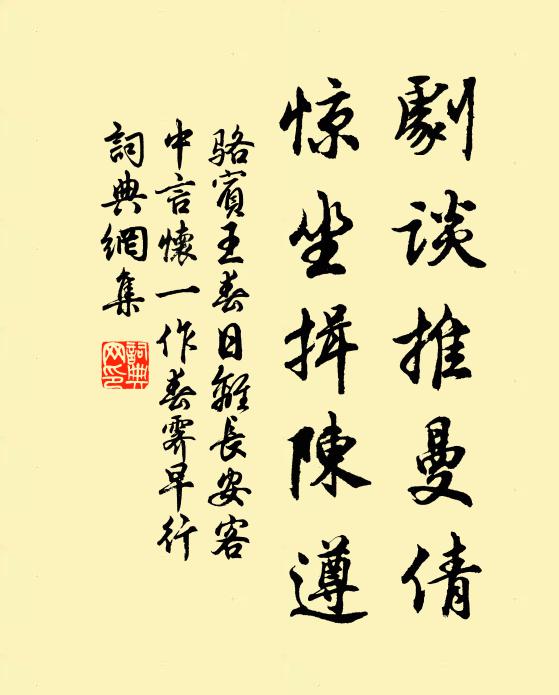 劇談推曼倩
惊坐揖陳遵
骆賓王春日離長安客
中言懷一作春霽早行
詞典網集
詞典网印